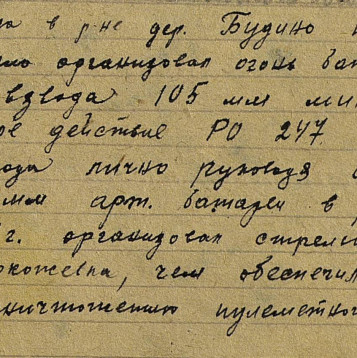 на в р-не дер. Будино
ло организовал огонь бат
взвода 105 мм ми
ое действие РО 247
ода лично руководя
мм арт. батареи в
г. организовал стрель
ожоževна, чем обеспечил
ничтожению пулеметно